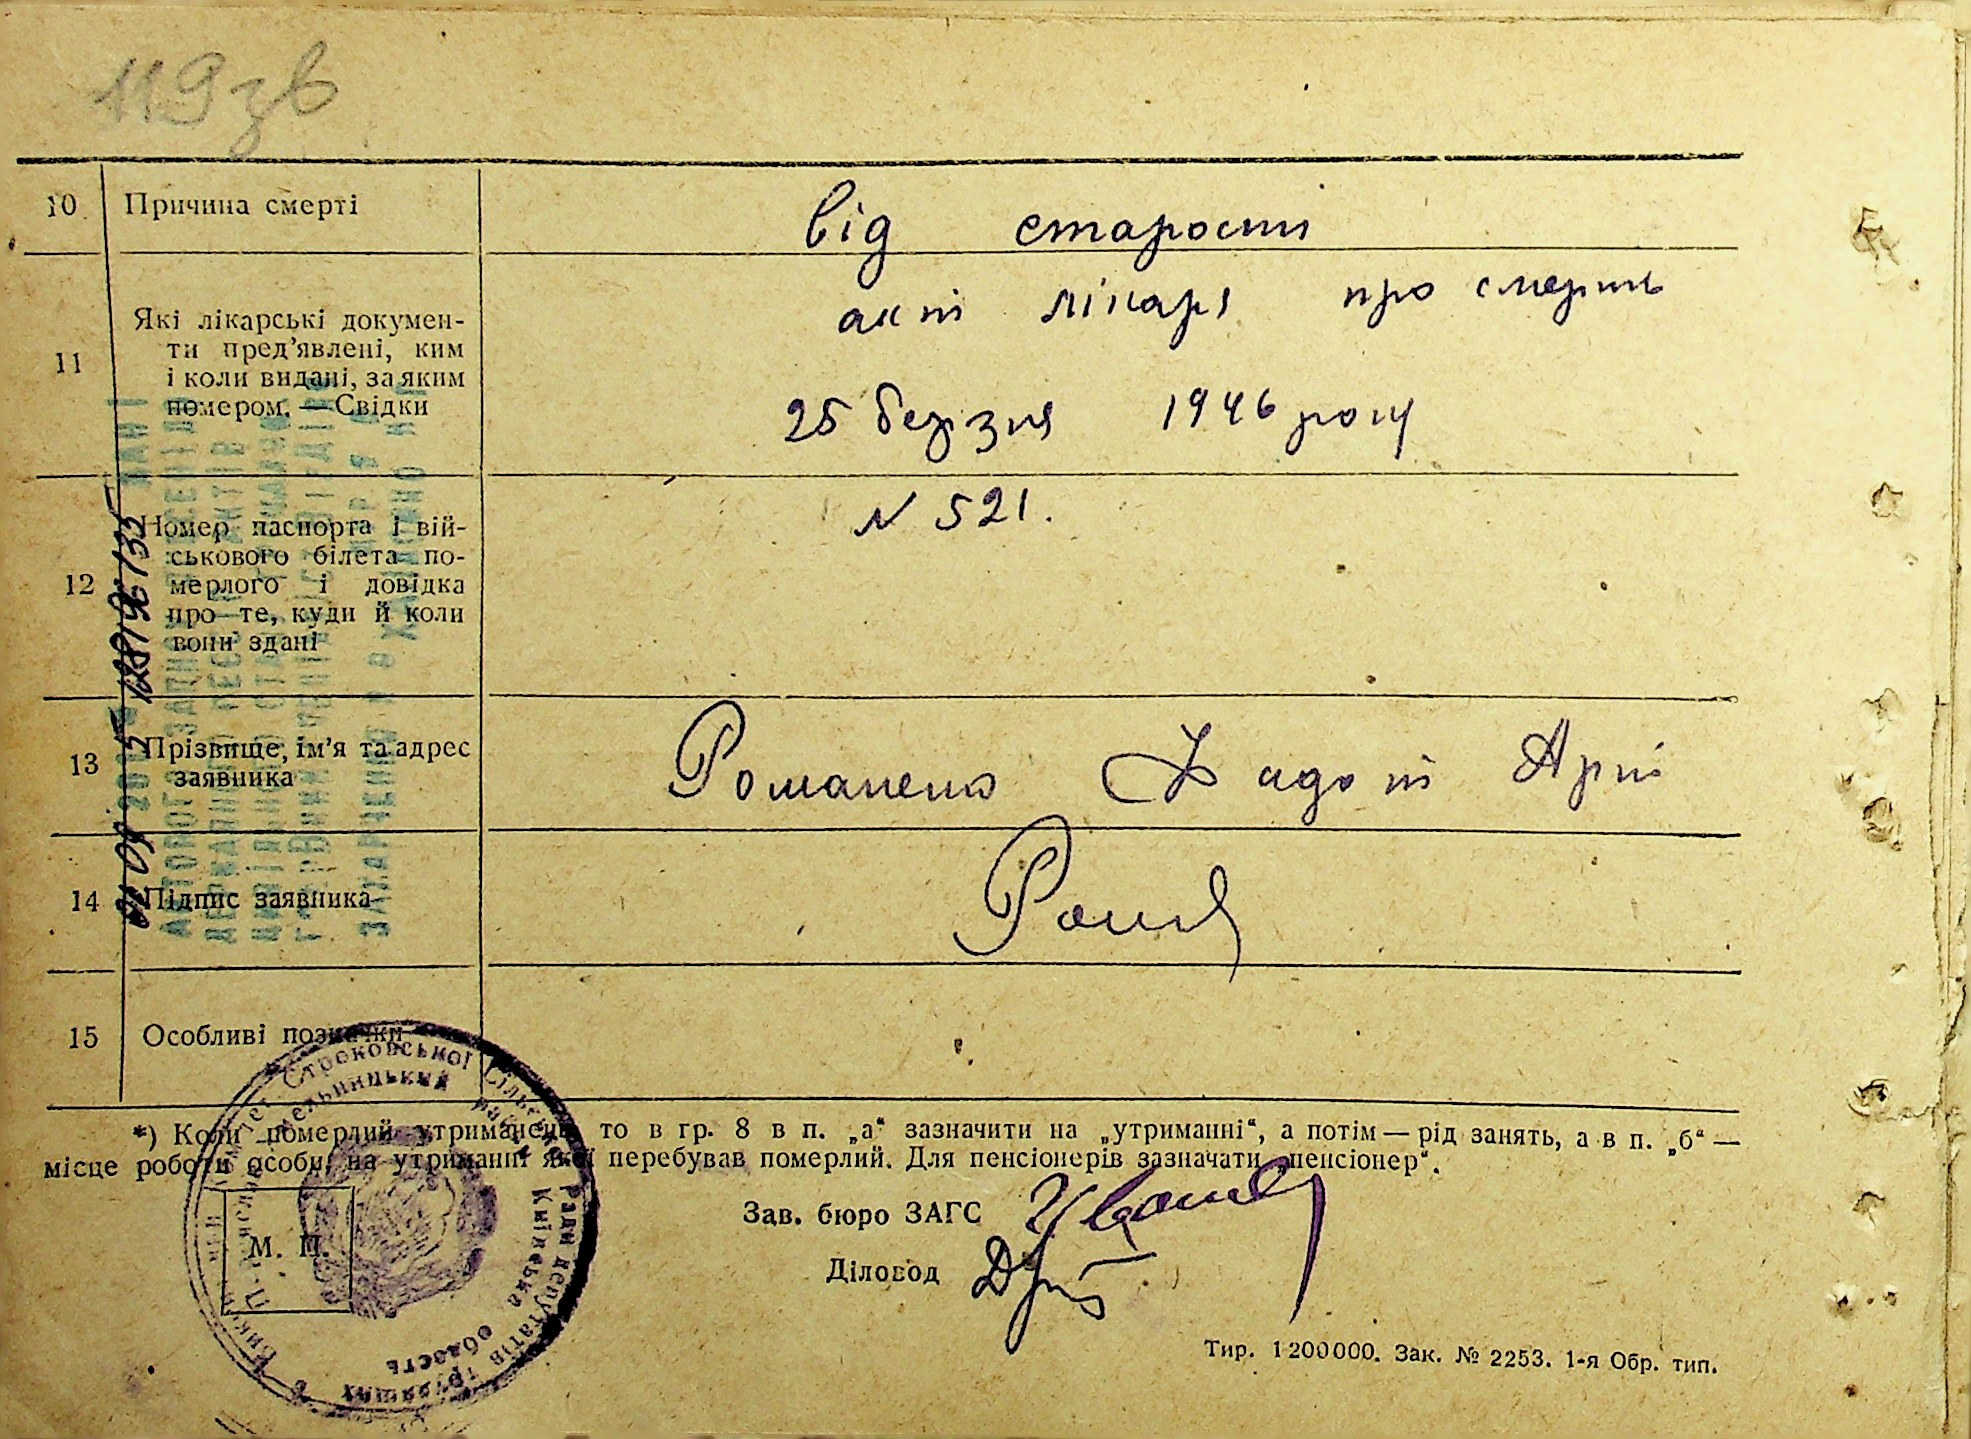 119 зв
10 Причина смерті від старости
11 Які лікарські докумен-
ти пред'явлені, ким
і коли видані, за яким
номером. — Свідки
акт лікаря про смерть
25 березня 1946 року
N 521.
12 Номер паспорта і вій-
ськового білета по-
мерлого і довідка
про те, куди й коли
вони здані
13 Прізвище, ім'я та адрес
заявника
Романенко
14 Підпис заявника
15 Особливі позначки
*) Коли померлий утриманець, то в гр. 8 в п. „а“ зазначити на „утриманні“, а потім — рід занять, а в п. „б“ —
місце роботи особи, на утриманні якої перебував померлий. Для пенсіонерів зазначати „пенсіонер“.
Зав. бюро ЗАГС
Діловод
М. П.
Строковської Сільської Ради депутатів трудящих
Хмельницький район Київська область
Тир. 1200000. Зак. № 2253. 1-я Обр. тип.